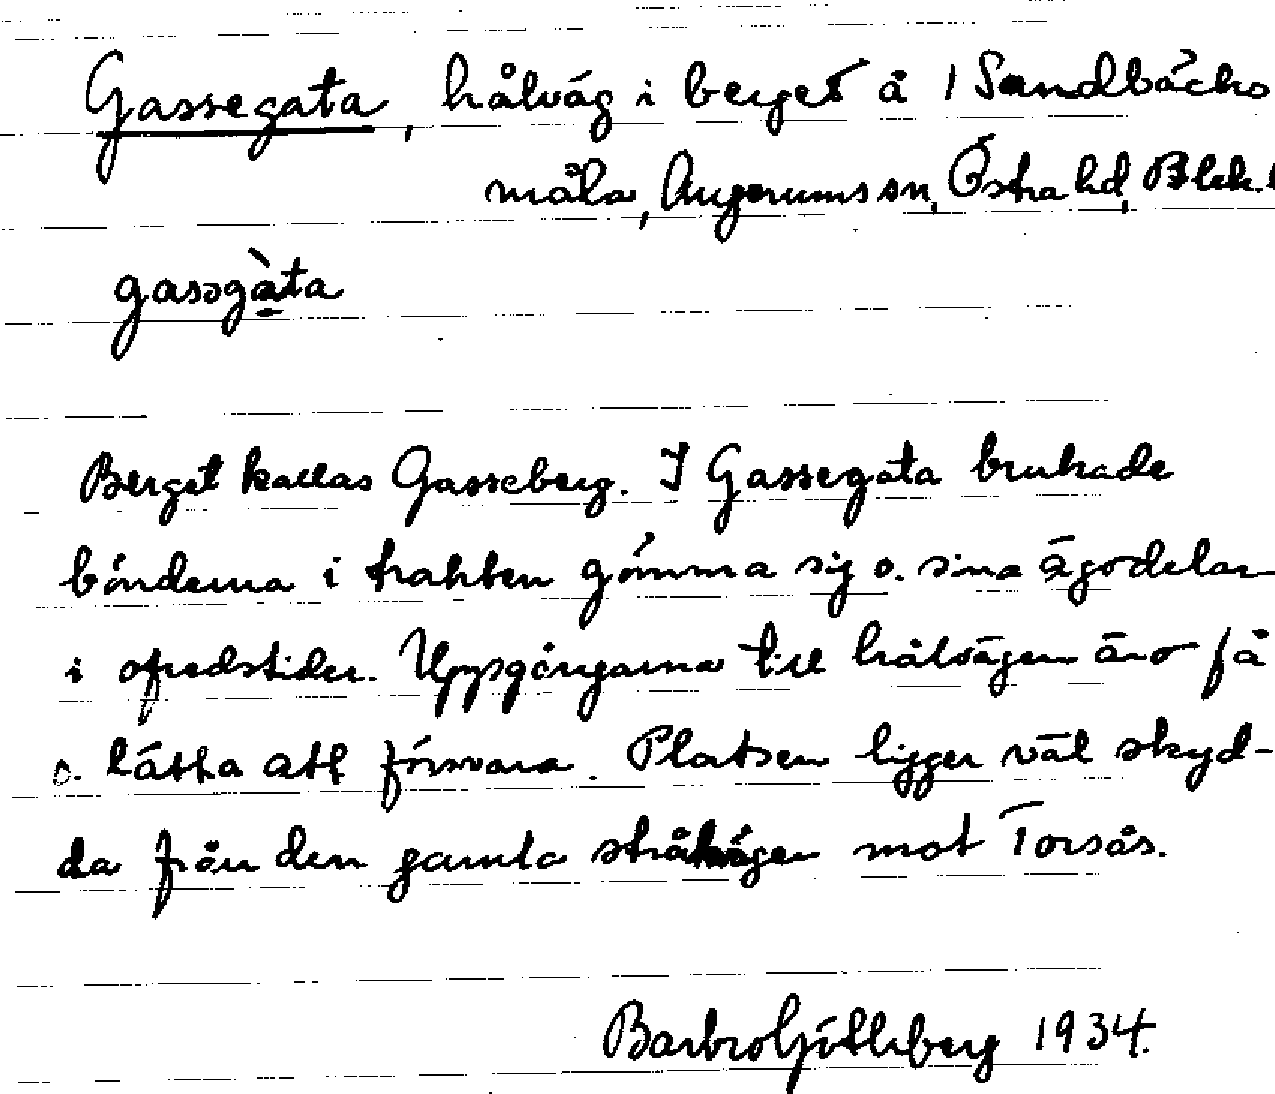 Gassegata, hålväg i berget å 1 Sandbäcks
måla, Augerums sn, Östra hd, Blek. l
gassgàta
Berget kallas Gasseberg. I Gassegata brukade
bönderna i trakten gömma sig o. sina ägodelar
i ofredstider. Uppgångarna till hålvägen äro få
o. lätta att försvara. Platsen ligger väl skyd-
da från den gamla stråkvägen mot Torsås.
Barbro Götheberg 1934.